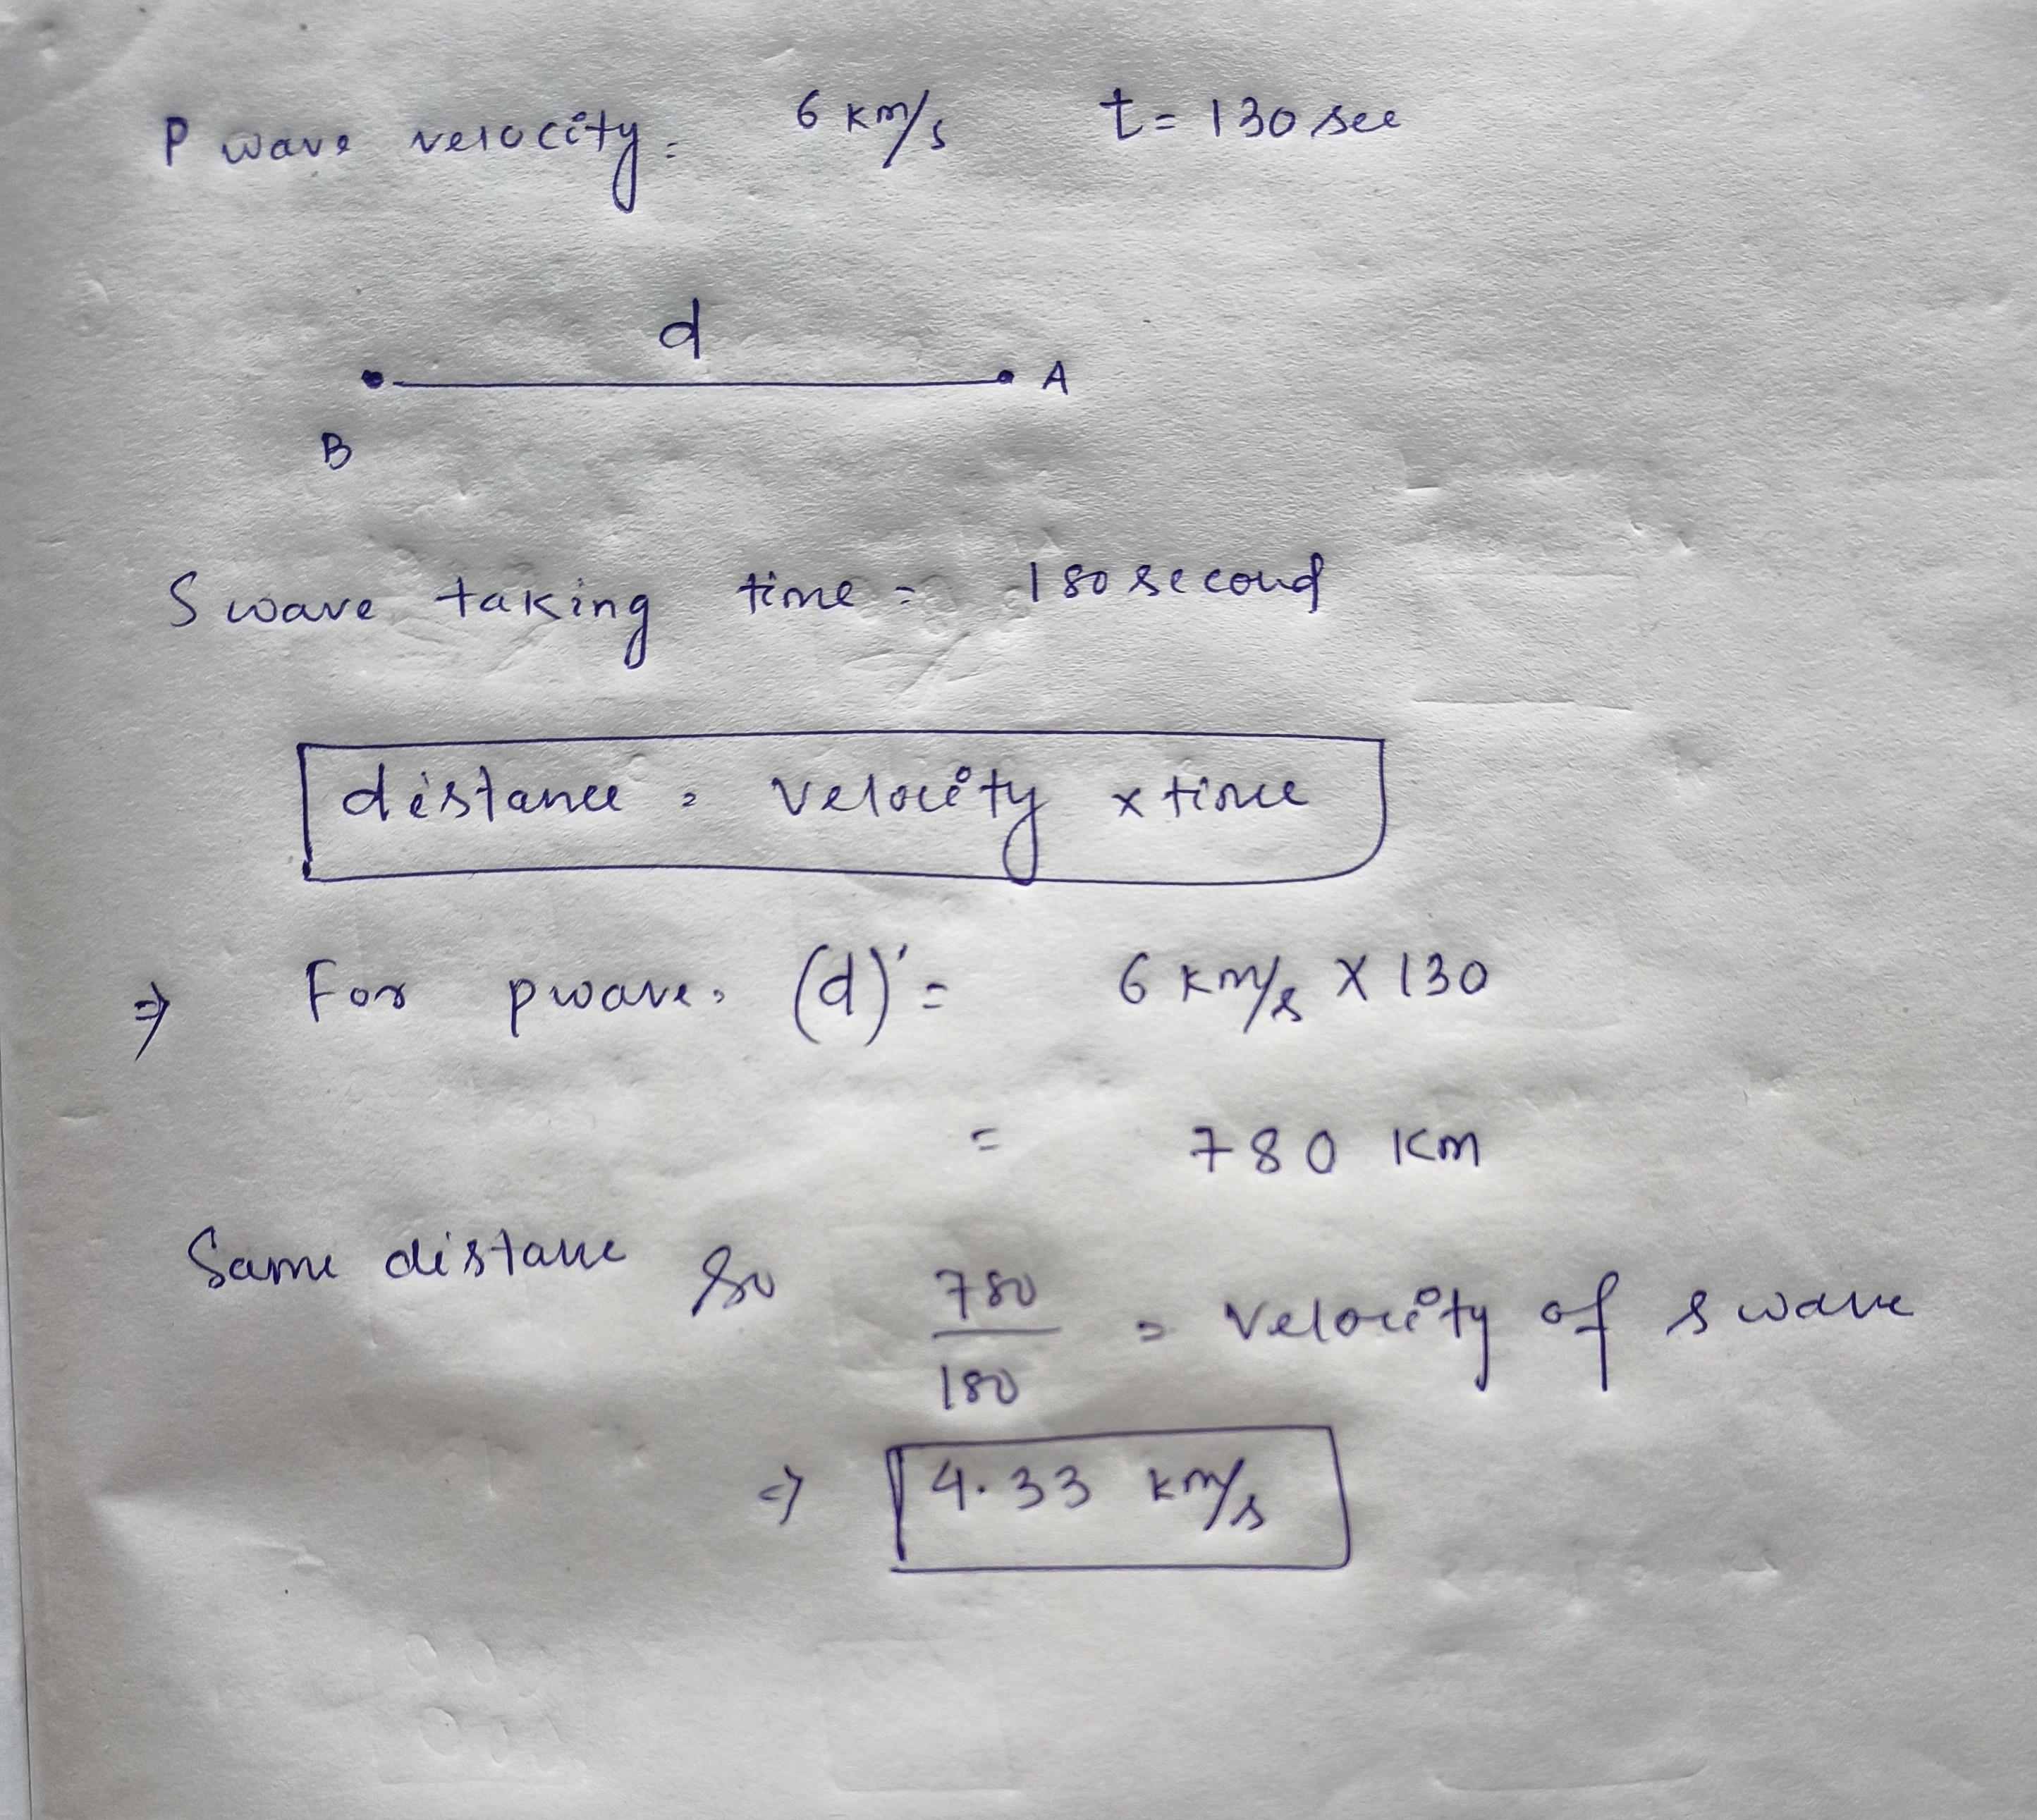 P wave velocity = 6 km/s t = 130 sec
d
A
B
S wave taking time = 180 second
distance = velocity x time
⇒ For pwave. (d)' = 6 km/s X 130
= 780 Km
Same distance So 780/180 = velocity of s wave
⇒ 4.33 km/s